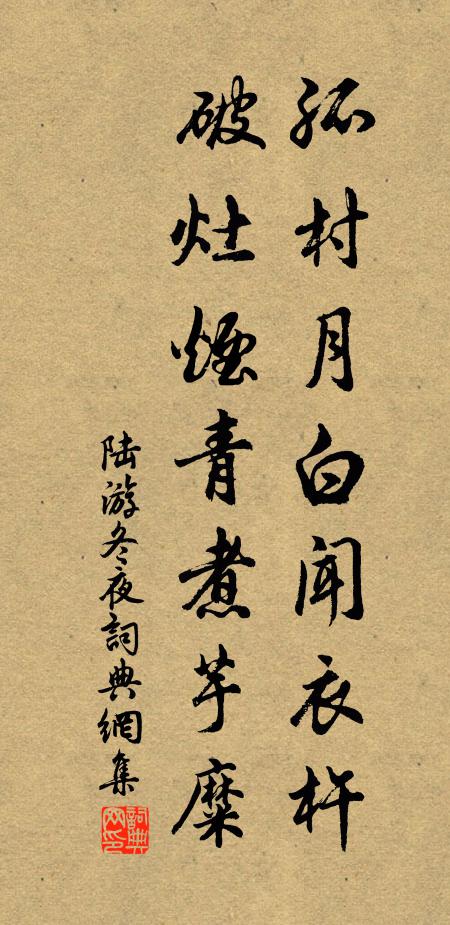 孤村月白闻衣杵
破灶煙青煮芋糜
陆游冬夜詞典網集
詞典网印